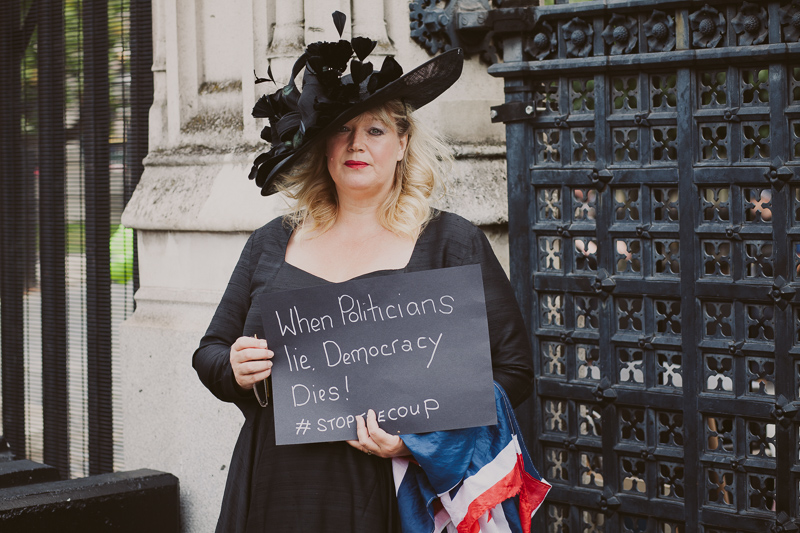 When Politicians
lie, Democracy
Dies!
#STOPTHECOUP